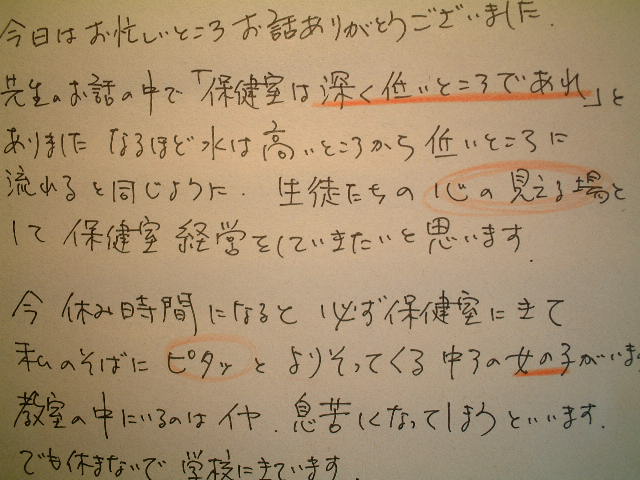 今日はお忙しいところお話ありがとうございました.
先生のお話の中で「保健室は深く低いところであれ」と
ありました なるほど水は高いところから低いところに
流れると同じように. 生徒たちの心の見える場と
して保健室経営をしていきたいと思います.
今休み時間になると必ず保健室にきて
私のそばにピタッとよりそってくる中3の女の子がいま
教室の中にいるのはイヤ. 息苦しくなってしまうといいます.
でも休まないで学校にきています.